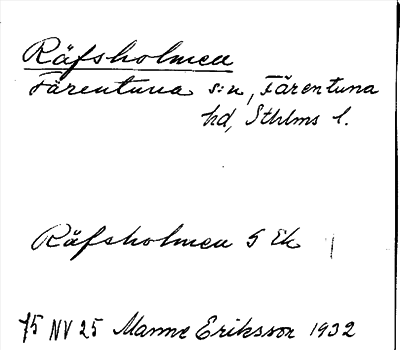 Räfsholmen
Färentuna s:n, Färentuna
hd, Sthlms l.
Räfsholmen 5 Ek
75 NV 25 Manne Eriksson 1932